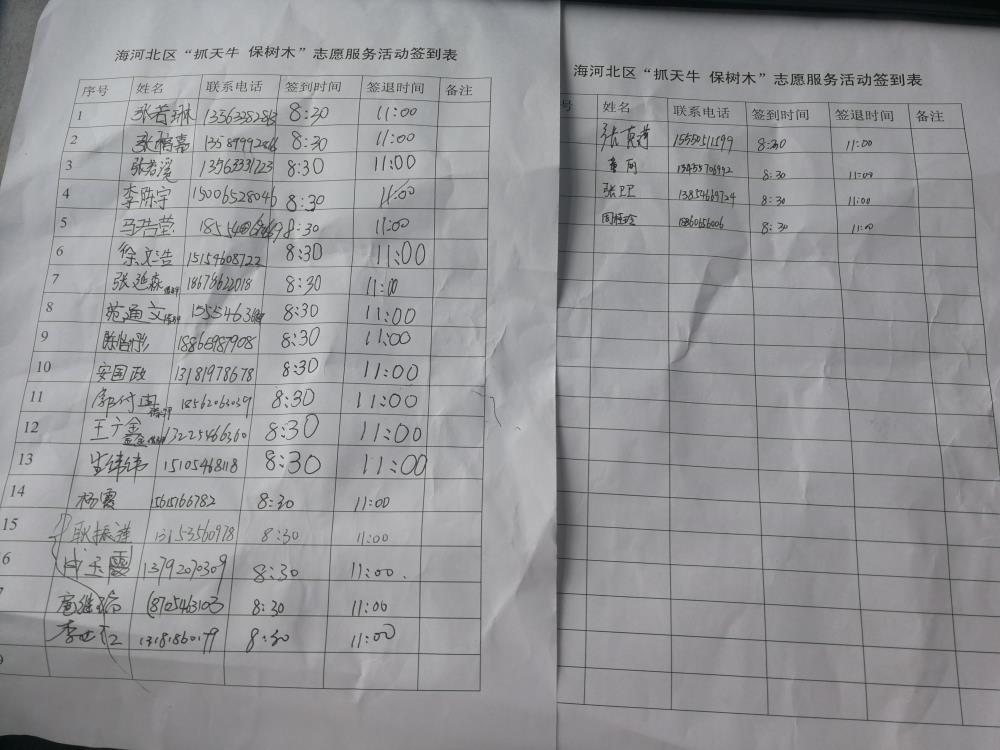 海河北区“抓天牛 保树木”志愿服务活动签到表
序号 姓名 联系电话 签到时间 签退时间 备注
1 张若琳 8:30 11:00
2 8:30 11:00
3 张若溪 13563331723 8:30 11:00
4 李陈宇 15006528046 8:30 11:00
5 马浩莹 8:30 11:00
6 徐文浩 15154608722 8:30 11:00
7 张延森 18678622018 8:30 11:00
8 苑通文 8:30 11:00
9 18866987908 8:30 11:00
10 安国政 13181978678 8:30 11:00
11 18562063039 8:30 11:00
12 13225466360 8:30 11:00
13 15105468118 8:30 11:00
14 杨霞 15615166782 8:30 11:00
15 耿振莲 13153560978 8:30 11:00
6 成玉霞 13792070309 8:30 11:00
18705463103 8:30 11:00
13181860179 8:30 11:00
海河北区“抓天牛 保树木”志愿服务活动签到表
号 姓名 联系电话 签到时间 签退时间 备注
张真莲 15550511599 8:30 11:00
8:30 11:00
张卫 13854669724 8:30 11:00
周桂珍 8:30 11:00